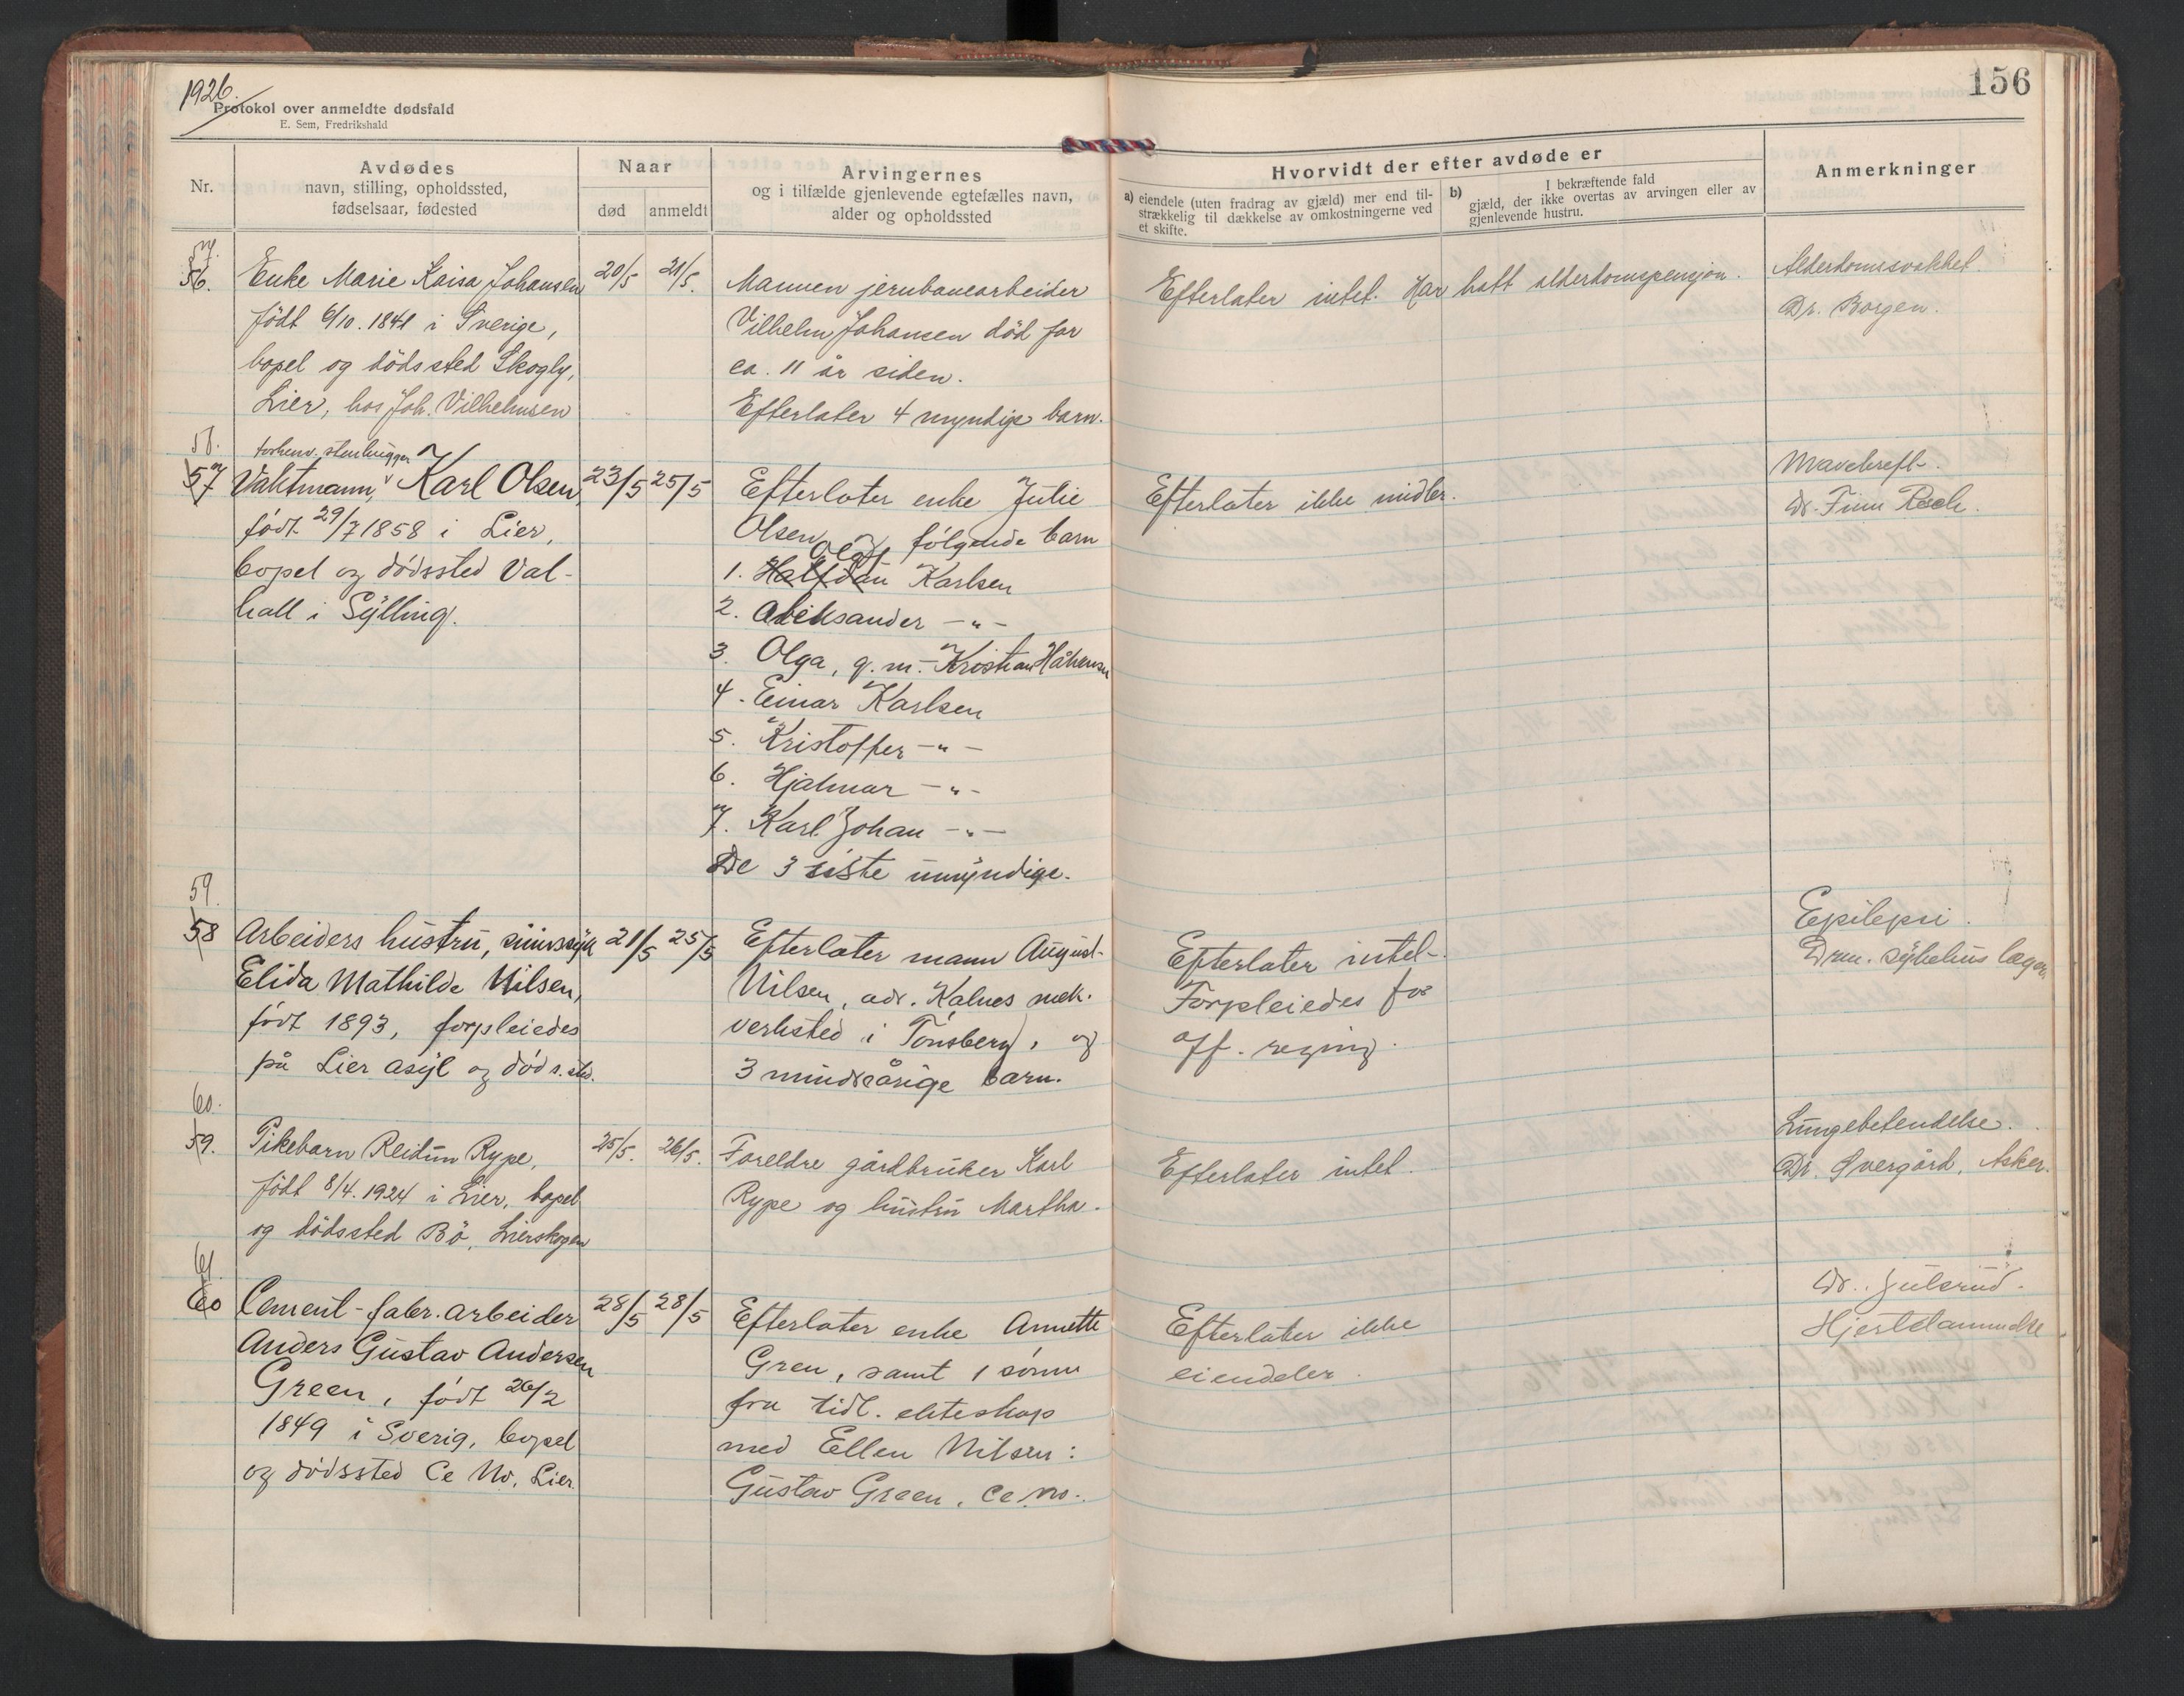 1926.
Protokol over anmeldte dødsfald
E. Sem, Fredrikshald
156
Nr.
Avdødes
navn, stilling, opholdssted,
fødselsaar, fødested
Naar
død
anmeldt
Arvingernes
og i tilfælde gjenlevende egtefælles navn,
alder og opholdssted
Hvorvidt der efter avdøde er
a) eiendele (uten fradrag av gjæld) mer end til-
strækkelig til dækkelse av omkostningerne ved
et skifte.
b) I bekræftende fald
gjæld, der ikke overtas av arvingen eller av
gjenlevende hustru.
Anmerkninger
57.
56.
Enke Marie Kaisa Johansen
født 6/10. 1841 i Sverige,
bopel og dødssted Skogly,
Lier, hos Joh. Vilhelmsen
20/5
21/5.
Mannen jernbanearbeider
Vilhelm Johansen død for
ca. 11 år siden.
Efterlater 4 myndige barn.
Efterlater intet. Har hatt alderdomspensjon.
Alderdomssvakhet.
Dr. Borgen.
58.
57
forhenv. stenhugger
Vaktmann, Karl Olsen,
født 29/7 1858 i Lier,
bopel og dødssted Val-
hall i Sylling.
23/5
25/5
Efterlater enke Julie
Olsen og følgende barn
Olaf
1. Halfdan Karlsen
2. Aleksander -"-
3. Olga, g. m. Kristian Håkensen
4. Einar Karlsen
5. Kristoffer -"-
6. Hjalmar -"-
7. Karl Johan -"-
De 3 siste umyndige.
Efterlater ikke midler.
Mavekreft.
Dr. Finn
59.
58
Arbeiders hustru, sinnssyk
Elida Mathilde Nilsen,
født 1893, forpleiedes
på Lier asyl og døds.std.
21/5
25/5
Efterlater mann August
Nilsen, adr. Kalnes mek.
verksted i Tønsberg, og
3 mindreårige barn.
Efterlater intet.
Forpleiedes for
off. regning.
Epilepsi.
Drm. sykehus læge.
60.
59.
Pikebarn Reidun Rype,
født 8/4. 1924 i Lier, bopel
og dødssted Bø, Lierskogen
25/5.
26/5.
Foreldre gårdbruker Karl
Rype og hustru Martha.
Efterlater intet.
Lungebetendelse.
Dr. Øvergård, Asker.
61
60
Cement-fabr. arbeider
Anders Gustav Andersen
Green, født 26/2
1849 i Sverig, bopel
og dødssted Ce No, Lier
28/5
28/5
Efterlater enke Annette
Gren, samt 1 sønn
fra tidl. ekteskap
med Ellen Nilsen:
Gustav Green, Ce No.
Efterlater ikke
eiendeler.
Dr. Julsrud.
Hjertelammelse